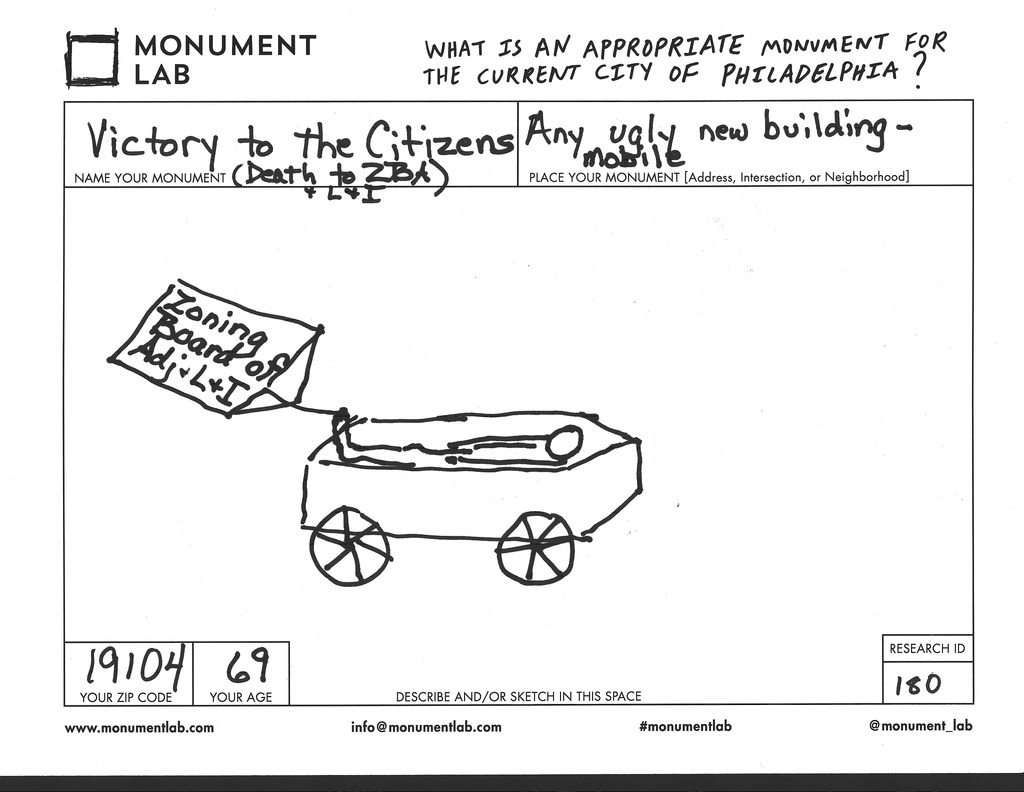 MONUMENT
LAB
WHAT IS AN APPROPRIATE MONUMENT FOR
THE CURRENT CITY OF PHILADELPHIA?
Victory to the Citizens
(Death to ZBA)
+ L+I
NAME YOUR MONUMENT
Any ugly new building -
mobile
PLACE YOUR MONUMENT [Address, Intersection, or Neighborhood]
Zoning
Board of
Adj + L+I
19104
YOUR ZIP CODE
69
YOUR AGE
DESCRIBE AND/OR SKETCH IN THIS SPACE
RESEARCH ID
180
www.monumentlab.com
info@monumentlab.com
#monumentlab
@monument_lab